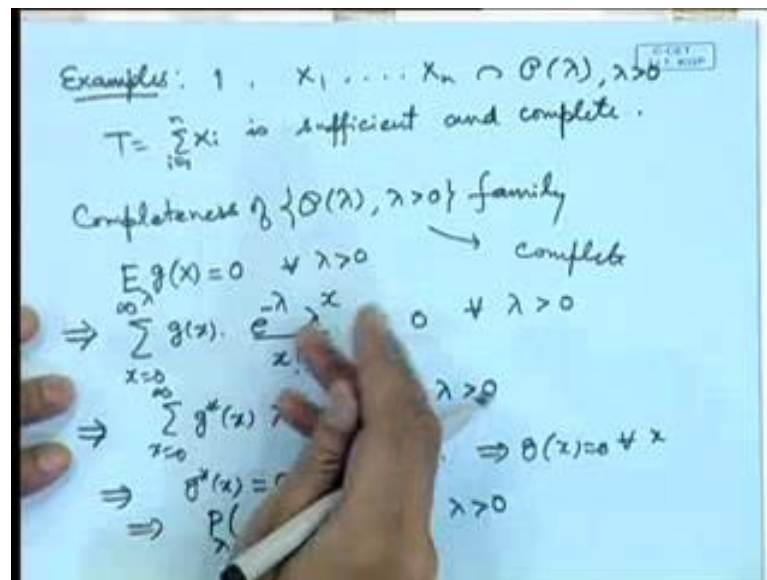 Examples: 1. X1 .... Xn ∩ P(λ), λ>0
T = ∑_{i=1}^{n} Xi is sufficient and complete.
Completeness of {P(λ), λ>0} family
→ complete
E_λ g(X) = 0 ∀ λ>0
⇒ ∑_{x=0}^{∞} g(x). e^{-λ} λ^x / x! 0 ∀ λ>0
⇒ ∑_{x=0}^{∞} g*(x) λ λ>0
⇒ g*(x) = 0 ⇒ g(x)=0 ∀ x
⇒ P_λ( λ>0